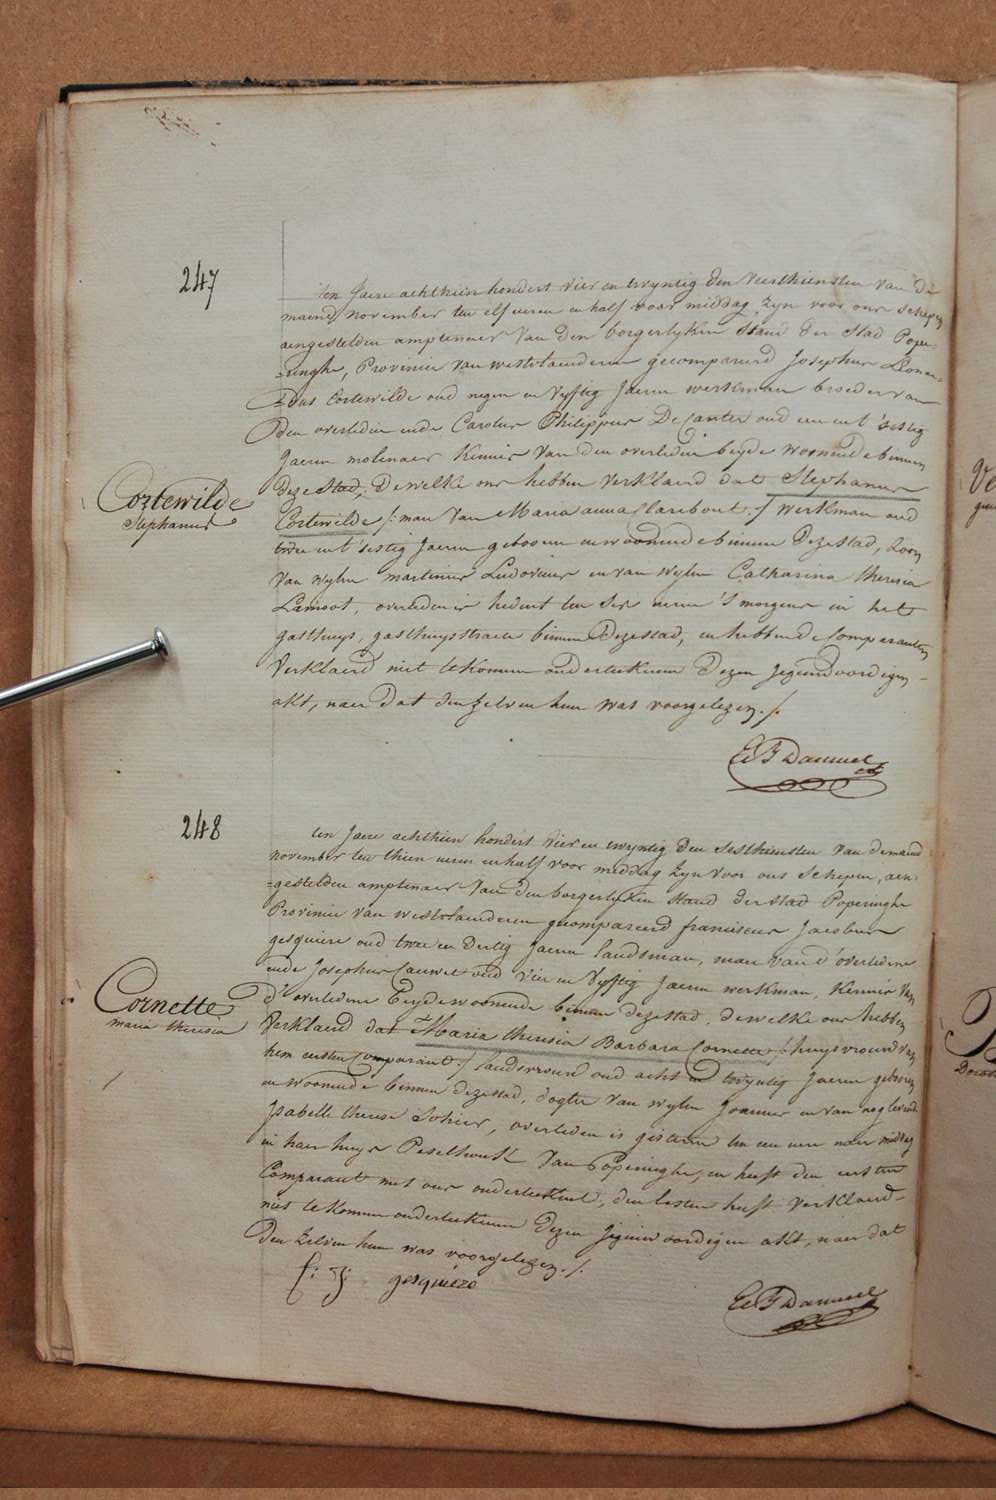 247
ten Jaere achthien hondert vier en twyntig den veerthiensten van de
maend november ten elf ueren en half voor middag zyn voor ons schepen
aengestelden amptenaer van den borgerlyken stand der stad Pope-
=ringhe, Provincie van westvlaenderen gecompareerd Josephus Leonar-
=dus Cortewilde oud negen en vyftig Jaeren werkman broeder van
den overleden ende Carolus Philippus DeCanter oud een en t'sestig
Jaeren molenaer kennis van den overleden beyde woonende binnen
deze stad, dewelke ons hebben verklaerd dat Stephanus
Cortewilde /: man van Maria anna Clarebout :/ werkman oud
twee en t'sestig Jaeren geboren en woonende binnen deze stad, zoon
van wylen martinus Ludovicus en van wylen Catharina theresia
Lamoot, overleden is heden ten ses ueren 's morgens in het
gasthuys, gasthuysstraete binnen deze stad, en hebben de Comparanten
verklaerd niet te konnen onderteekenen dezen jegenwoordigen
akt, naer dat den zelven hun was voorgelezen ./.
Cortewilde
Stephanus
E F Danneel
248
ten Jaere achthien hondert vier en twyntig den sesthiensten van de maend
november ten thien ueren en half voor middag zyn voor ons schepen, aen-
=gestelden amptenaer van den borgerlyken stand der stad Poperinghe
Provincie van westvlaenderen gecompareerd franciscus Jacobus
gesquiere oud twee en dertig Jaeren landsman, man van d'overledene
ende Josephus Cauwet oud vier en vyftig Jaeren werkman, kennis van
d'overledene beyde woonende binnen deze stad, dewelke ons hebben
verklaerd dat Maria theresia Barbara Cornette /: huysvrouw van
hem eersten Comparant :/ landsvrouw oud acht en twyntig Jaeren geboren
en woonende binnen deze stad, dogter van wylen Joannes en van nog levende
Isabelle therese Sohier, overleden is gisteren ten een uere naer middag
in haer huys Peselhoek van Poperinghe, en heeft den eersten
Comparant met ons onderteekent, den lesten heeft verklaerd
niet te konnen onderteekenen dezen jegenwoordigen akt, naer dat
den zelven hun was voorgelezen ./.
Cornette
maria theresia
f: J: gesquiere
E F Danneel